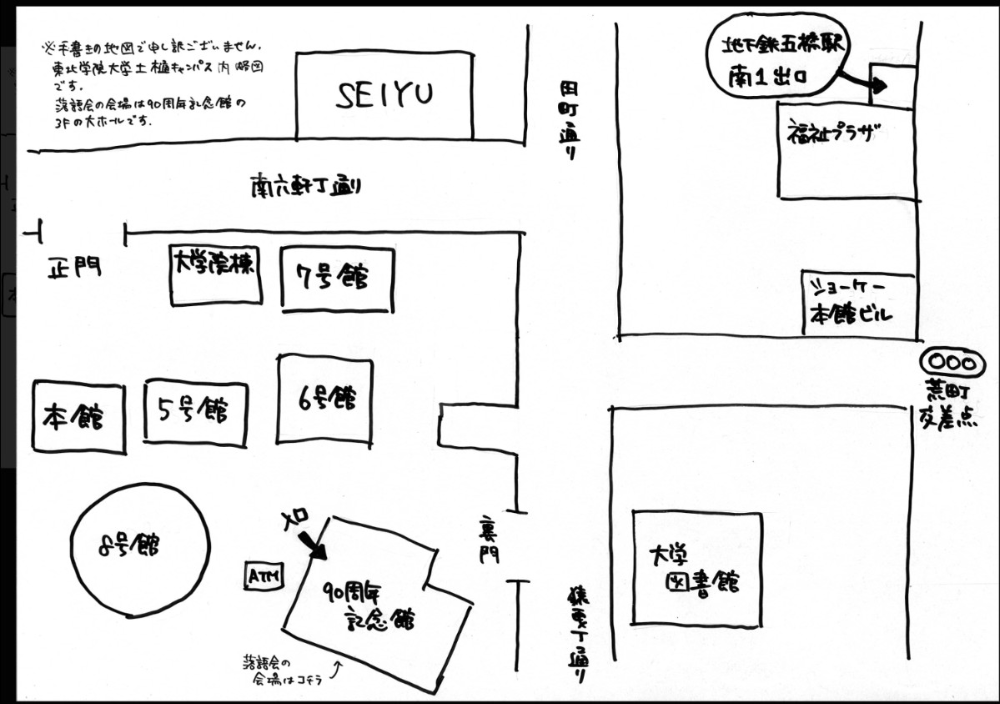 ※手書きの地図で申し訳ございません。
東北学院大学土樋キャンパス内略図
です。
落語会の会場は90周年記念館の
3Fの大ホールです。
SEIYU
田町通り
地下鉄五橋駅
南1出口
福祉プラザ
南六軒丁通り
正門
大学院棟
7号館
ショーケー
本館ビル
荒町
交差点
本館
5号館
6号館
8号館
入口
ATM
90周年
記念館
裏門
大学
図書館
猿曳丁通り
落語会の
会場はコチラ